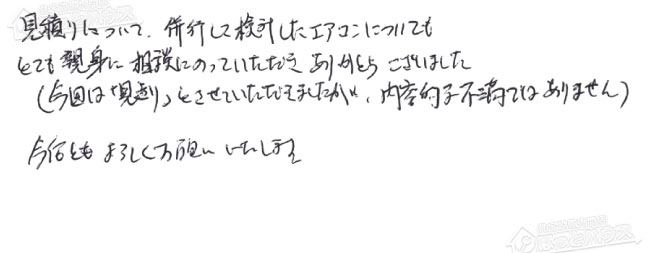 見積りについて、併行して検討したエアコンについても
とても親身に相談にのっていただき ありがとうございました
(今回は見送り、とさせていただきましたが、内容的な不満ではありません)
今後とも よろしくお願い いたします